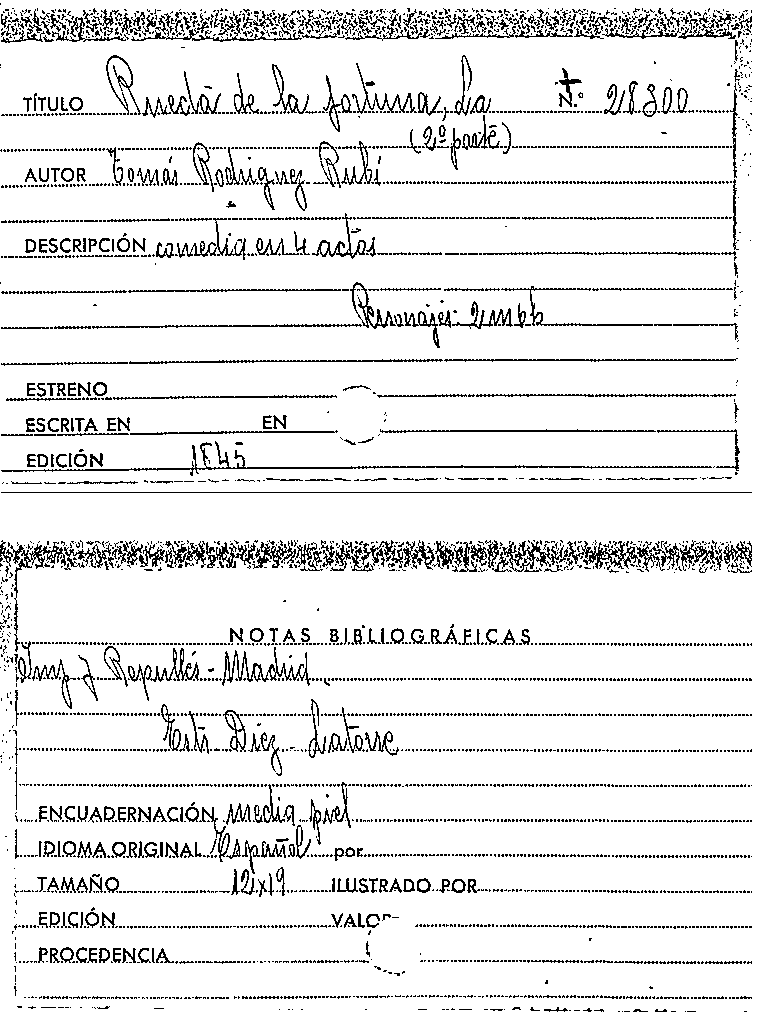 TÍTULO Rueda de la fortuna, La N.º 28300
(2ª parte)
AUTOR Tomás Rodriguez Rubí
DESCRIPCIÓN comedia en 4 actos
Personajes:
ESTRENO
ESCRITA EN EN
EDICIÓN 1845
NOTAS BIBLIOGRÁFICAS
Imp J Repullés - Madrid.
Díez - Latorre
ENCUADERNACIÓN media piel
IDIOMA ORIGINAL Español por
TAMAÑO 12x19 ILUSTRADO POR
EDICIÓN VALOR
PROCEDENCIA